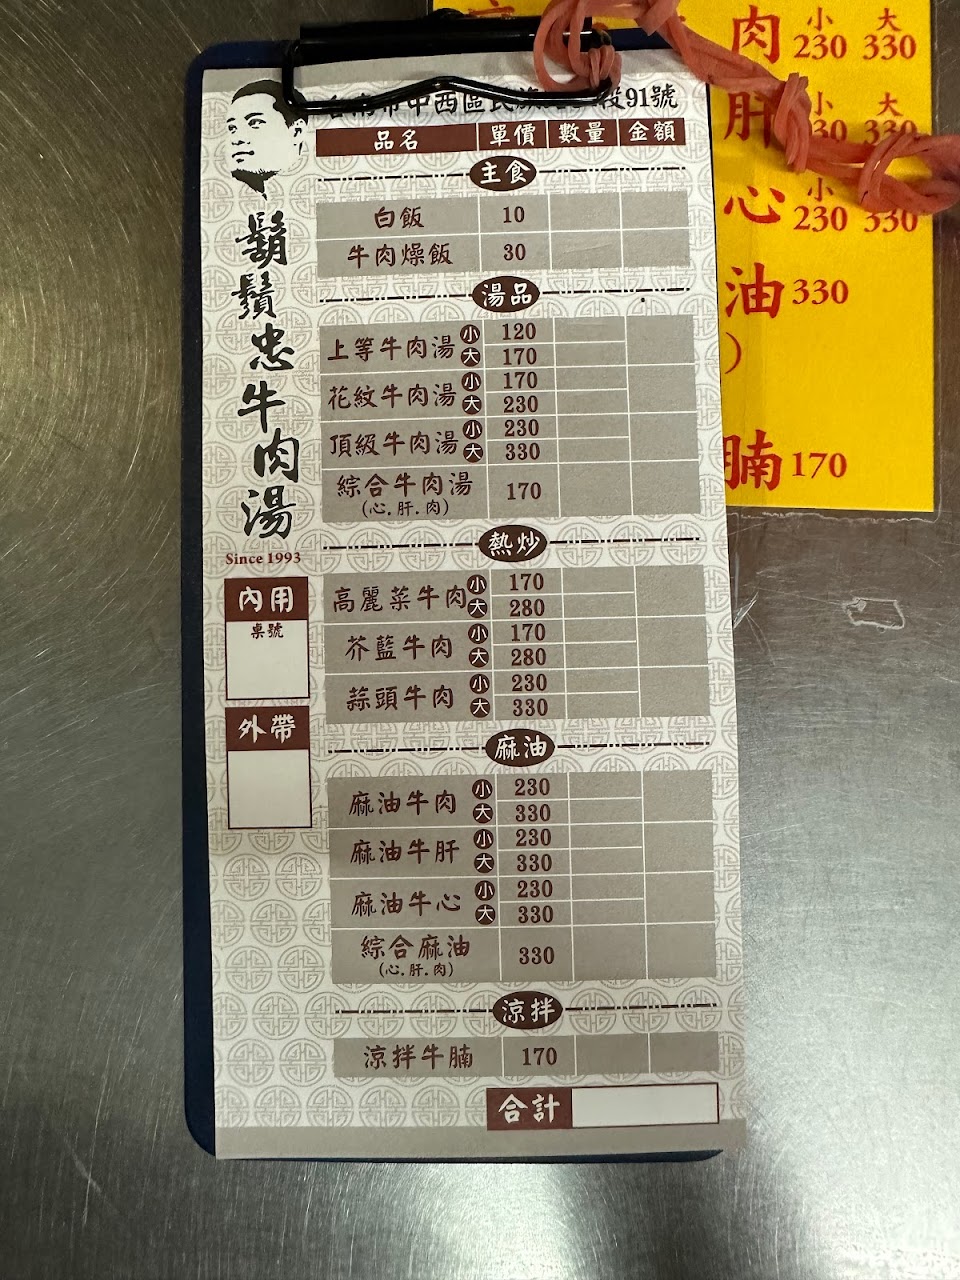 市中西區民族
91號
鬍鬚忠牛肉湯
Since 1993
內用
桌號
外帶
品名 單價 數量 金額
主食
白飯 10
牛肉燥飯 30
湯品
上等牛肉湯 小 120
大 170
花紋牛肉湯 小 170
大 230
頂級牛肉湯 小 230
大 330
綜合牛肉湯 170
(心.肝.肉)
熱炒
高麗菜牛肉 小 170
大 280
芥藍牛肉 小 170
大 280
蒜頭牛肉 小 230
大 330
麻油
麻油牛肉 小 230
大 330
麻油牛肝 小 230
大 330
麻油牛心 小 230
大 330
綜合麻油 330
(心.肝.肉)
涼拌
涼拌牛腩 170
合計
肉 小 大
230 330
肝 小 大
30 330
心 小
230 330
油 330
)
腩 170